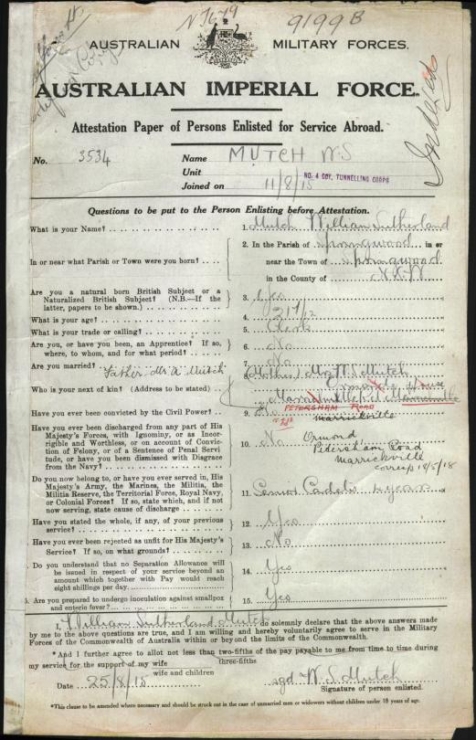 9199B
AUSTRALIAN MILITARY FORCES.
AUSTRALIAN IMPERIAL FORCE.
Attestation Paper of Persons Enlisted for Service Abroad.
No. 3534 Name MUTCH W.S
Unit NO. 4 COY. TUNNELLING CORPS
Joined on 11/8/15
Indexed
Questions to be put to the Person Enlisting before Attestation.
What is your Name? 1. Mutch William Sutherland
In or near what Parish or Town were you born? 2. In the Parish of Springwood in or
near the Town of Springwood
in the County of N.S.W
Are you a natural born British Subject or a
Naturalized British Subject? (N.B.—If the
latter, papers to be shown.) 3. Yes
What is your age? 4. 21 7/12
What is your trade or calling? 5. Clerk
Are you, or have you been, an Apprentice? If so,
where, to whom, and for what period? 6. No
Are you married? 7. No
Father Mr A Mutch
Who is your next of kin? (Address to be stated) 8. (Mother) Mrs M S Mutch
PETERSHAM ROAD
Marrickville
Have you ever been convicted by the Civil Power? 9.
Have you ever been discharged from any part of His
Majesty's Forces, with Ignominy, or as Incor-
rigible and Worthless, or on account of Convic-
tion of Felony, or of a Sentence of Penal Servi-
tude, or have you been Dismissed with Disgrace
from the Navy? 10. No
Ormond
Petersham Road
Marrickville
Do you now belong to, or have you ever served in, His
Majesty's Army, the Marines, the Militia, the
Militia Reserve, the Territorial Force, Royal Navy,
or Colonial Forces? If so, state which, and if not
now serving, state cause of discharge 11. Senior Cadets 2 years
Have you stated the whole, if any, of your previous
service? 12. Yes
Have you ever been rejected as unfit for His Majesty's
Service? If so, on what grounds? 13. No
Do you understand that no Separation Allowance will
be issued in respect of your service beyond an
amount which together with Pay would reach
eight shillings per day. 14. Yes
Are you prepared to undergo inoculation against smallpox
and enteric fever? 15. Yes
I William Sutherland Mutch do solemnly declare that the above answers made
by me to the above questions are true, and I am willing and hereby voluntarily agree to serve in the Military
Forces of the Commonwealth of Australia within or beyond the limits of the Commonwealth.
*And I further agree to allot not less than two-fifths of the pay payable to me from time to time during
three-fifths
my service for the support of my wife
wife and children
Date 25/8/15 sgd W S Mutch
Signature of person enlisted.
*This clause to be amended where necessary and should be struck out in the case of unmarried men or widowers without children under 18 years of age.